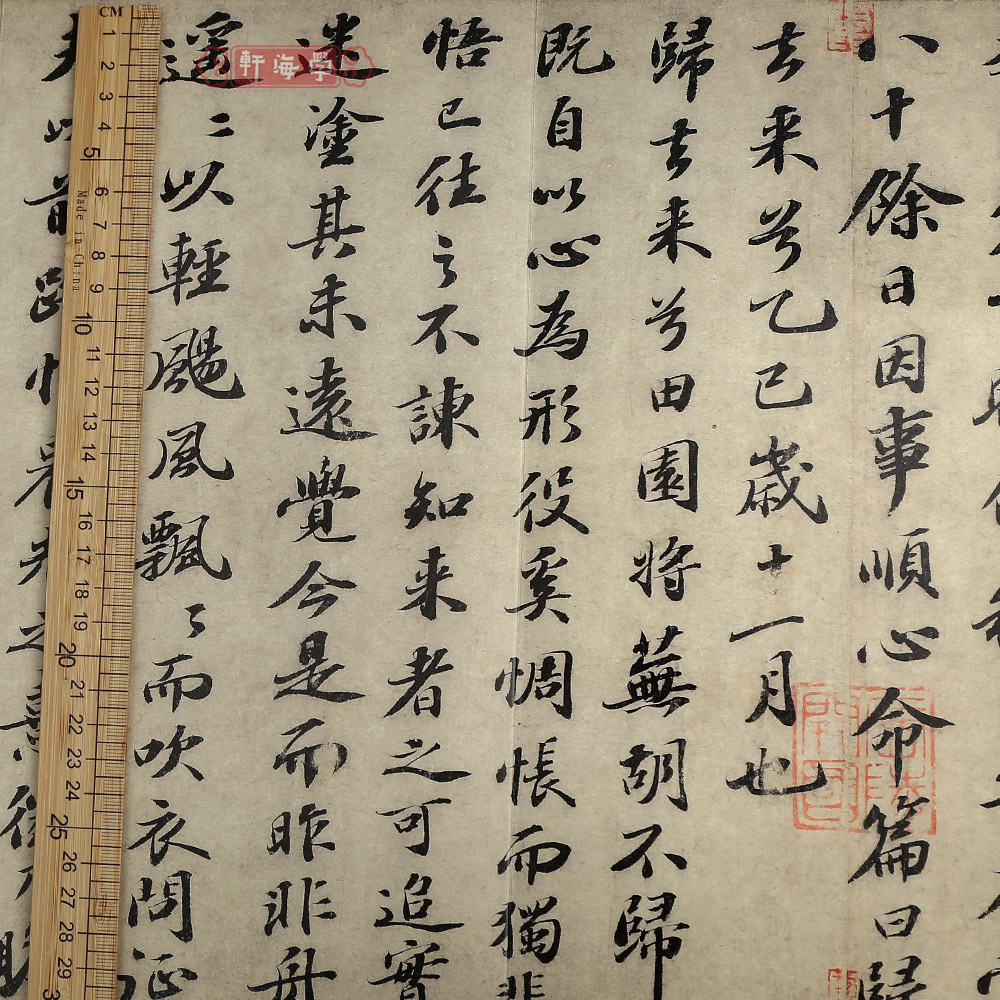 八十餘日因事順心命篇曰歸
去来兮乙巳歲十一月也
歸去来兮田園将蕪胡不歸
既自以心為形役奚惆悵而獨悲
悟已往之不諫知来者之可追實
迷塗其未遠覺今是而昨非舟
遥〻以輕颺風飄〻而吹衣問征
夫以前路恨晨光之熹微乃瞻
學海軒
CM
Made in China
1 2 3 4 5 6 7 8 9 10 11 12 13 14 15 16 17 18 19 20 21 22 23 24 25 26 27 28 29